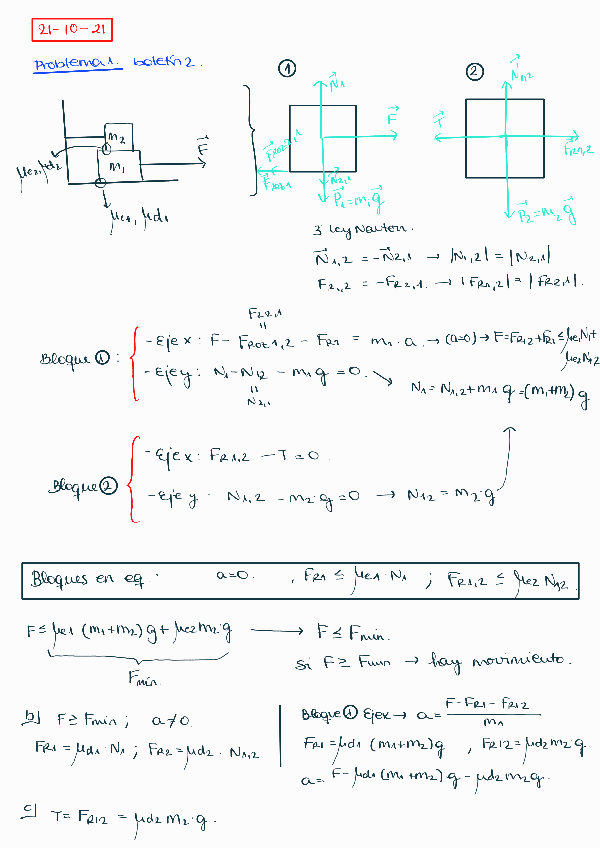 21-10-21
Problema 1. boletín 2.
①
②
m₂
m₁
F⃗
μe2, μd2
μe1, μd1
N⃗₁
F⃗
F⃗roz2,1
F⃗roz1
N⃗2,1
P⃗₁=m₁g⃗
N⃗1,2
T⃗
F⃗R1,2
P⃗₂=m₂g⃗
3ª ley Newton.
N⃗1,2 = -N⃗2,1 → |N1,2| = |N2,1|
F2,2 = -FR2,1. → |FR1,2| = |FR2,1|.
FR2,1
Bloque ①:
- Eje x: F - FROZ1,2 - FR1 = m₁·a. → (a=0) → F=FR12+FR1 ≤ μe1N1+
μe2N12
- Eje y: N1-N12 - m1g = 0. → N1=N1,2+m1g =(m1+m2)g
N2,1
Bloque ②
- Eje x: FR1,2 - T = 0.
- Eje y · N1,2 - m2·g = 0 → N12 = m2·g
Bloques en eq · a=0. , FR1 ≤ μe1·N1 ; FR1,2 ≤ μe2 N1,2.
F ≤ μe1 (m1+m2)g + μe2m2·g → F ≤ Fmín.
Fmín.
si F ≥ Fmin → hay movimiento.
b) F ≥ Fmin ; a≠0.
FR1=μd1·N1 ; FR2=μd2·N1,2
Bloque ① Eje x → a= F-FR1-FR12 / m1
FR1=μd1 (m1+m2)g , FR12=μd2m2·g
a= F-μd1(m1+m2)g-μd2m2g.
c) T= FR12 = μd2 m2·g.